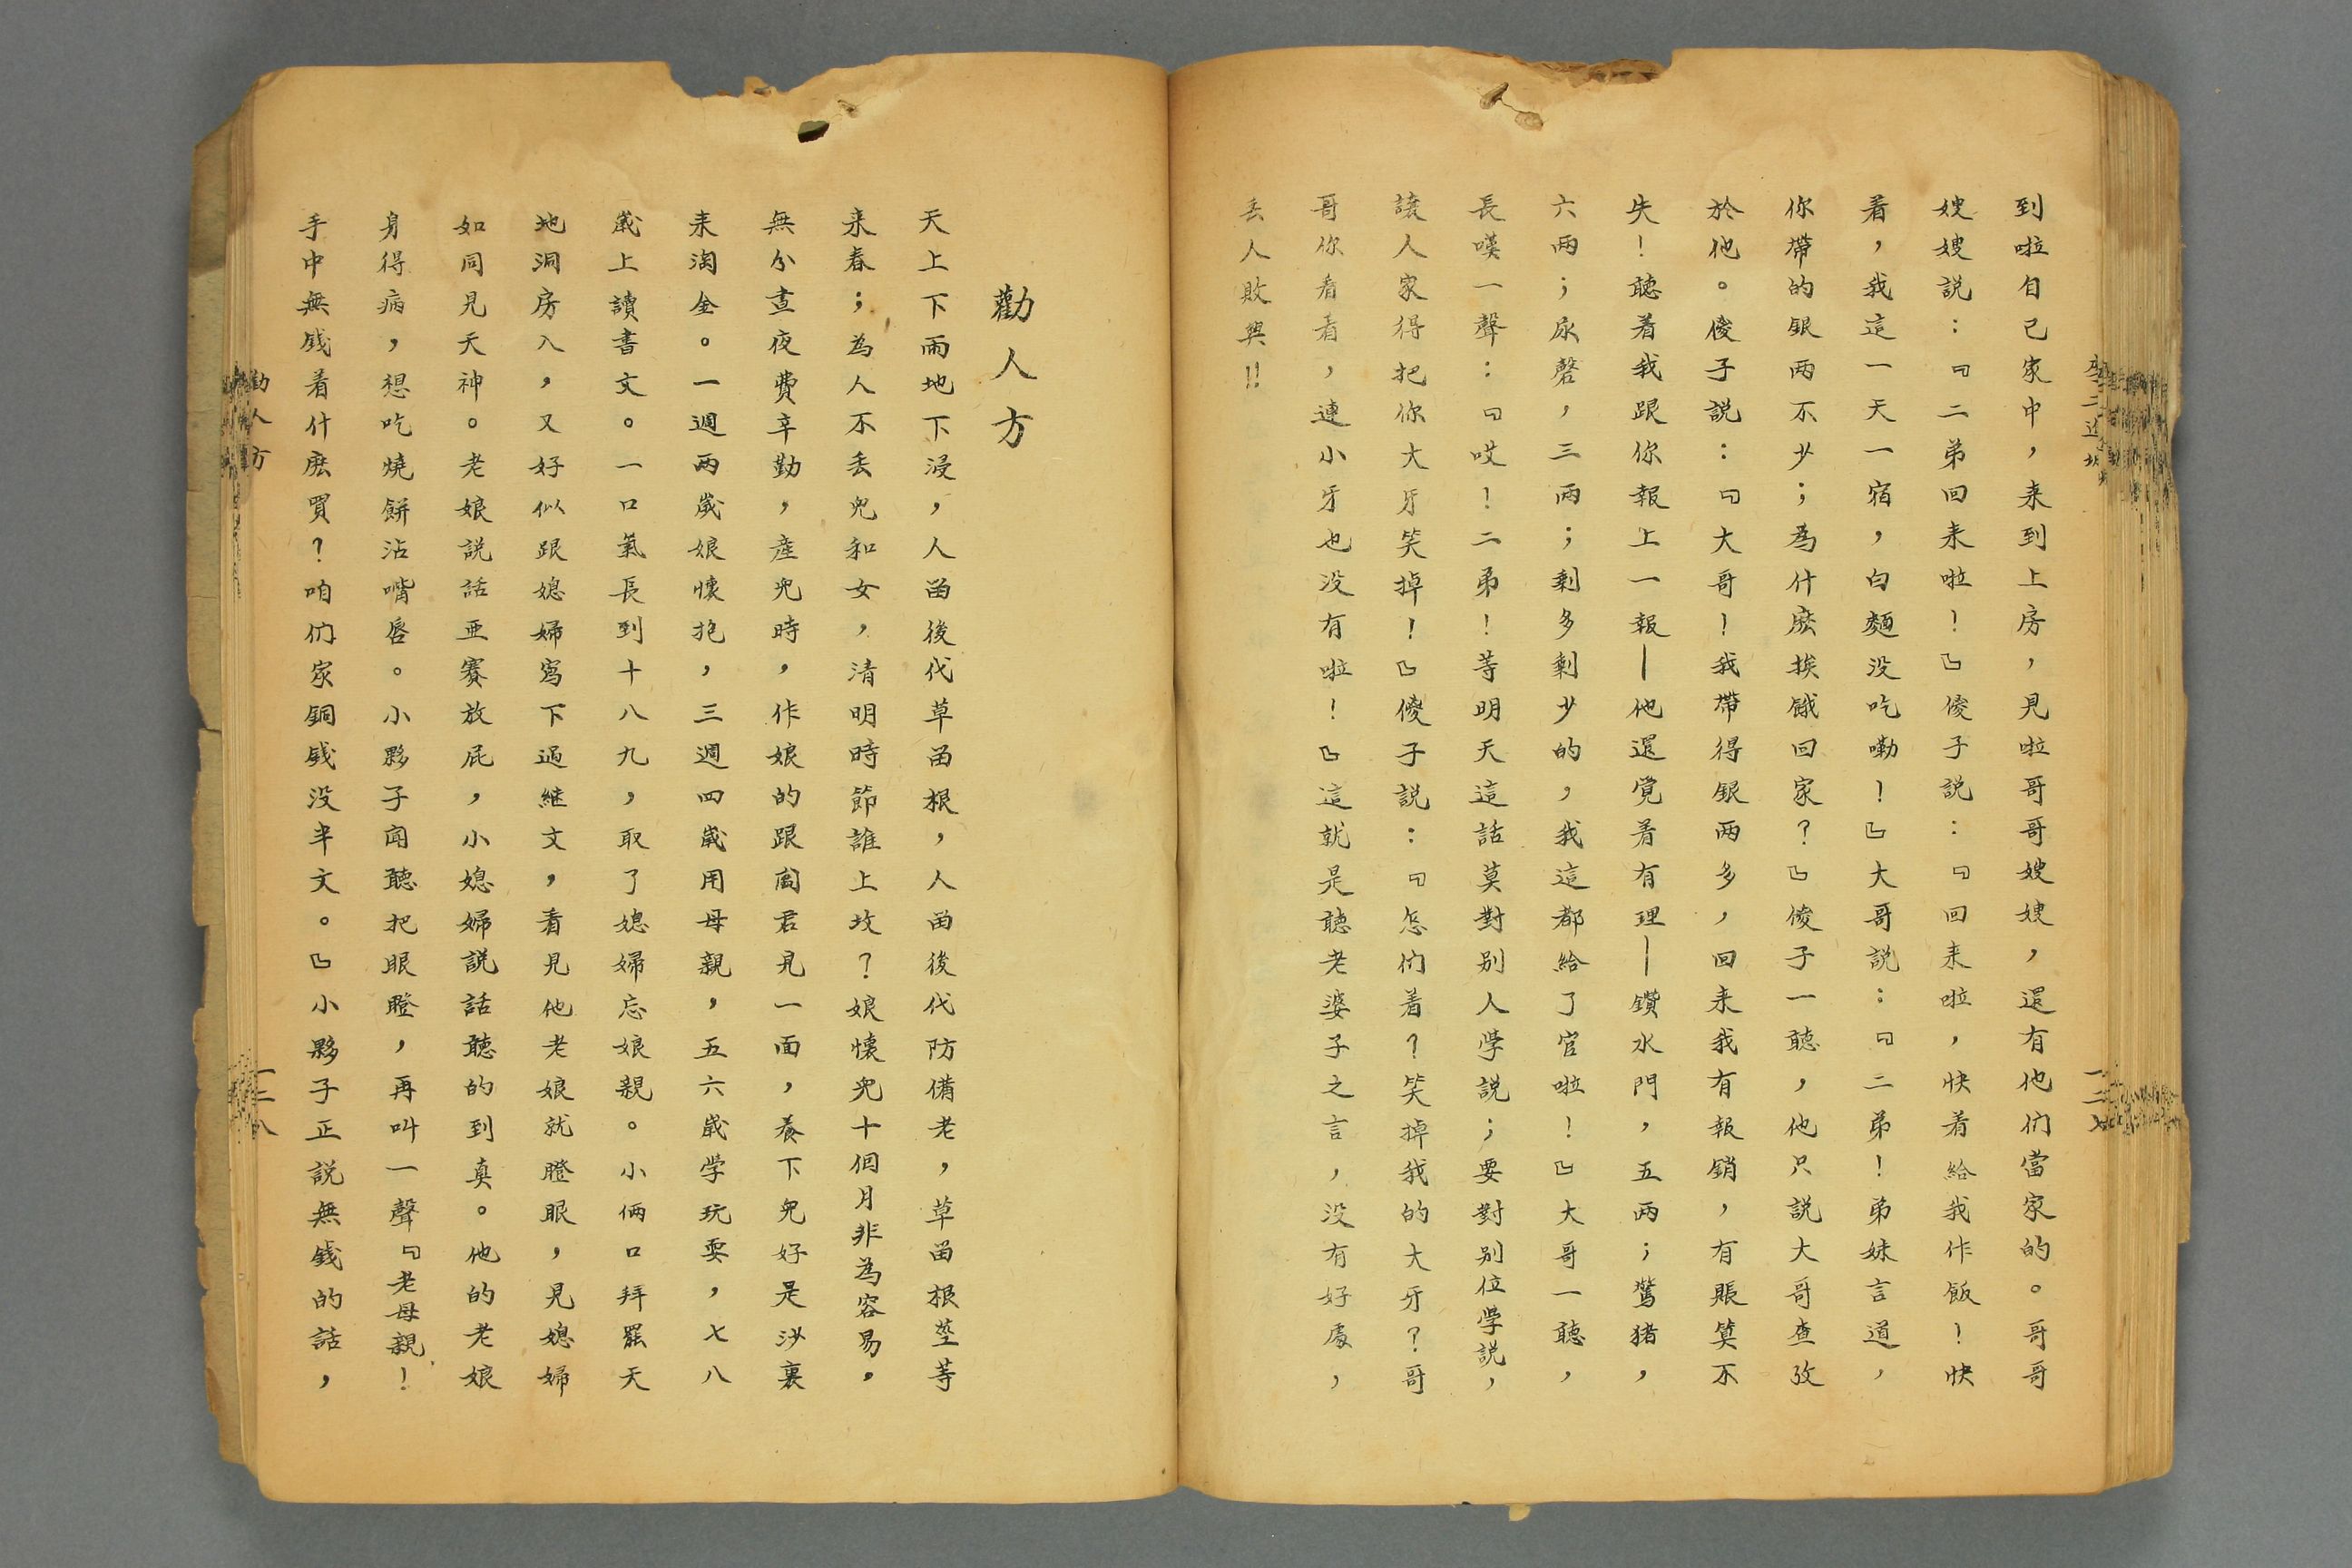 到啦自己家中，来到上房，見啦哥哥嫂嫂，還有他们當家的。哥哥
嫂嫂説：『二弟回来啦！』傻子説：『回来啦，快着給我作飯！快
着，我這一天一宿，白麵没吃嘞！』大哥説：『二弟！弟妹言道，
你帶的銀两不少；為什麽挨餓回家？』傻子一聽，他只説大哥查攷
於他。傻子説：『大哥！我帶得銀两多，回来我有報銷，有賬算不
失！聽着我跟你報上一報—他還覺着有理—鑽水門，五两；驚猪，
六两；尿磬，三两；剩多剩少的，我這都給了官啦！』大哥一聽，
長嘆一聲：『哎！二弟！等明天這話莫對别人学説；要對别位学説，
讓人家得把你大牙笑掉！』傻子説：『怎们着？笑掉我的大牙？哥
哥你看看，連小牙也没有啦！』這就是聽老婆子之言，没有好處，
丢人敗興!!
一二七
勸人方
天上下雨地下浸，人畄後代草畄根，人畄後代防備老，草畄根莖等
来春；為人不丢兒和女，清明時節誰上坟？娘懷兒十個月非為容易，
無分晝夜費辛勤，産兒時，作娘的跟閻君見一面，養下兒好是沙裏
来淘金。一週两歲娘懷抱，三週四歲用母親，五六歲学玩耍，七八
歲上讀書文。一口氣長到十八九，取了媳婦忘娘親。小俩口拜罷天
地洞房入，又好似跟媳婦寫下過継文，看見他老娘就瞪眼，見媳婦
如同見天神。老娘説話亚賽放屁，小媳婦説話聽的到真。他的老娘
身得病，想吃燒餅沾嘴唇。小夥子闻聽把眼瞪，再叫一聲『老母親！
手中無錢着什麽買？咱们家銅錢没半文。』小夥子正説無錢的話，
勸人方
一二八